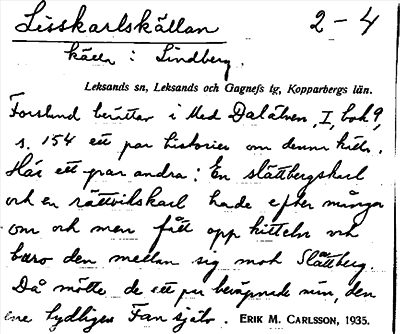 Lisskarlskällan 2-4
källa i Lindberg.
Leksands sn, Leksands och Gagnefs tg, Kopparbergs län.
Forslund berättar i Med Dalälven, I, bok 9,
s. 154 ett par historier om denna källa.
Här ett par andra: En slättbergskarl
och en rättvikskarl hade efter många
om och men fått opp kitteln och
baro den mellan sig mot Slättberg.
Då mötte de ett par beväpnade män, den
ene tydligen Fan själv. ERIK M. CARLSSON, 1935.